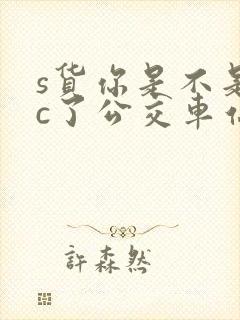 s货你是不是
c了公交车作
許森然